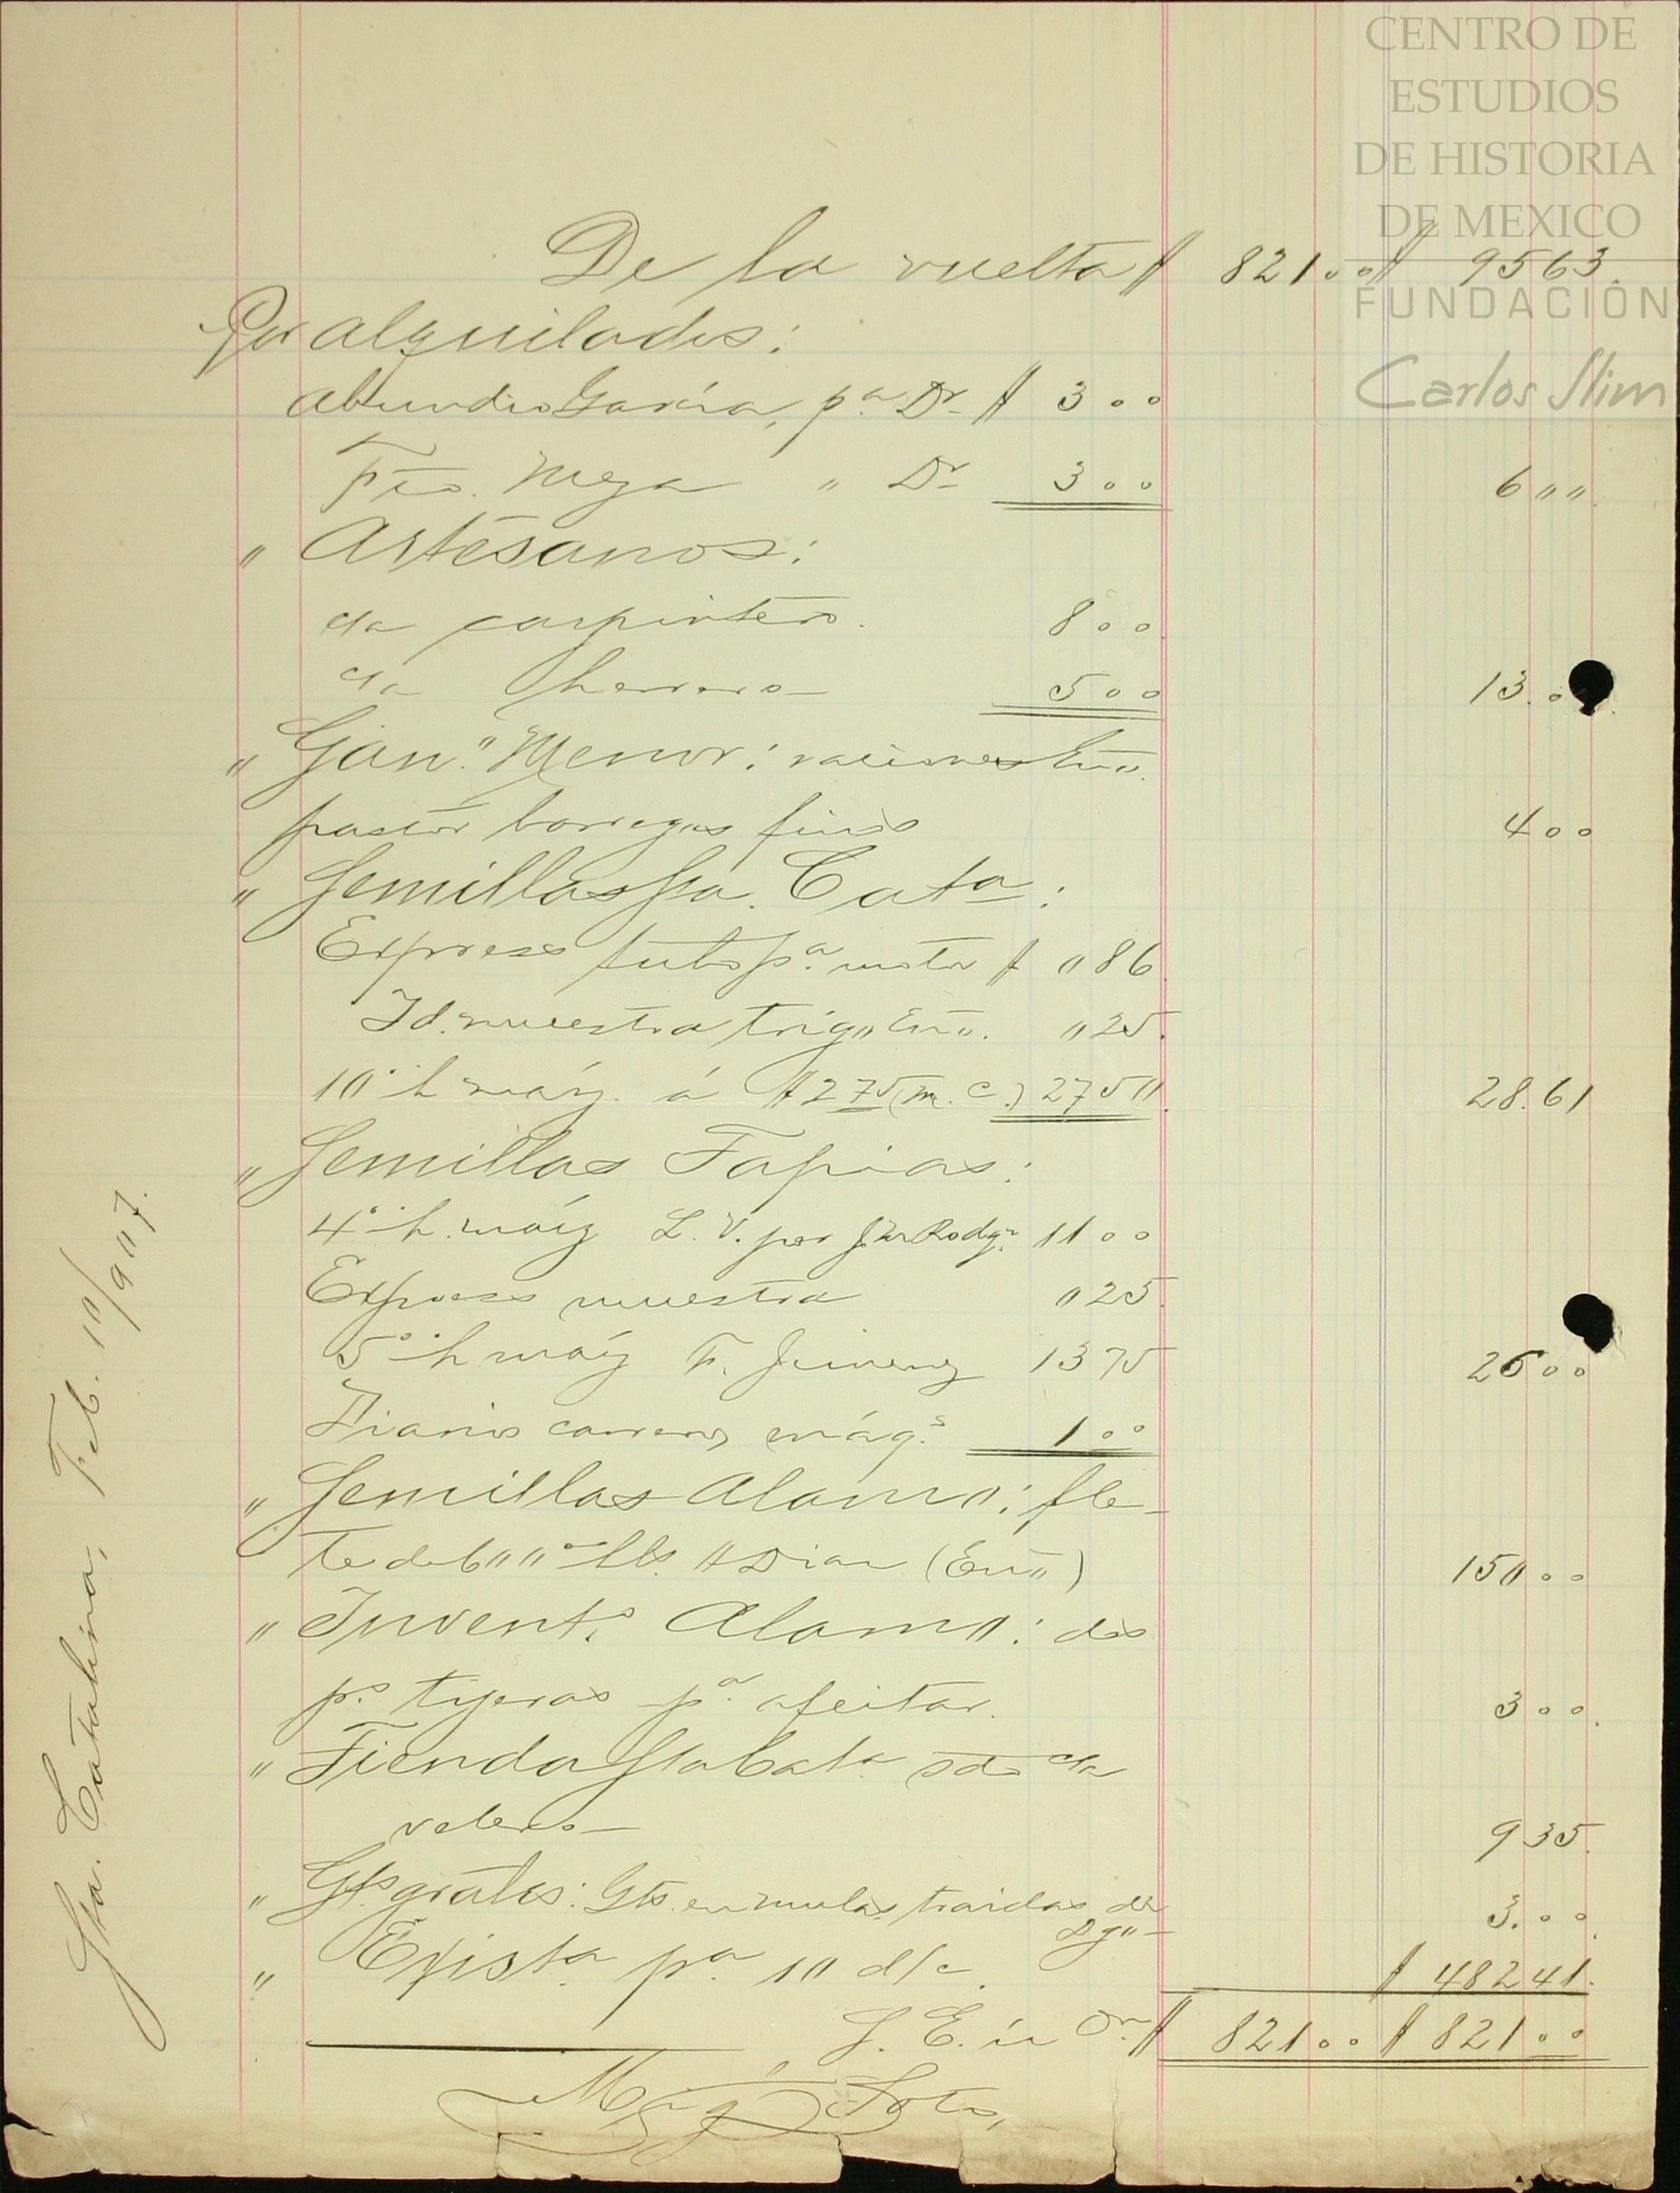 CENTRO DE
ESTUDIOS
DE HISTORIA
DE MEXICO
FUNDACIÓN
Carlos Slim
De la vuelta $ 821 00 $ 95 63
Por alquilados:
Abundio García, pª Dr $ 3 00
Fco. Meza " Dr 3 00 6 00
" Artesanos:
cta carpintero. 8 00
cta herrero 5 00 13.00
" Gan.º Menor: raciones En.º
pastor borregas finas 4 00
" Semillas Sta. Catª:
Express tubo pª. motor $ 0 86
Id. muestra trigo En.º 0 25
10 h maíz á $2 75 (m. c.) 27 50 28.61
" Semillas Tapias:
4 h. maíz L. V. por Rodgz 11 00
Express muestra 0 25
5 h maíz F. Jimenez 13 75 26 00
Diarios máqs. 1 00
" Semillas Alamo: fle-
te de 600 (En.º) 150 00
" Invent.º Alamo: dos
ps. tijeras pª. afeitar. 3 00.
" Tienda Sta Catª sdo cta
valeros 9 35
" Gts. grales: Gts. en mulas traidas de
Dgo 3.00
" Existª. pª. 10 d/c. $ 482 41.
S. E. ú On. $ 821 00 $ 821 00
M. Soto,
Sta. Catalina, Feb. 10/907.